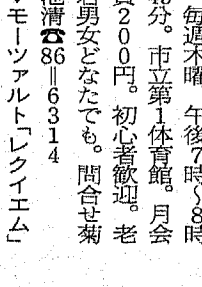 毎週木曜 午後7時〜8時
45分。市立第1体育館。月会
費200円。初心者歓迎。老
若男女どなたでも。問合せ菊
池清☎86‖6314
モーツァルト「レクイエム」